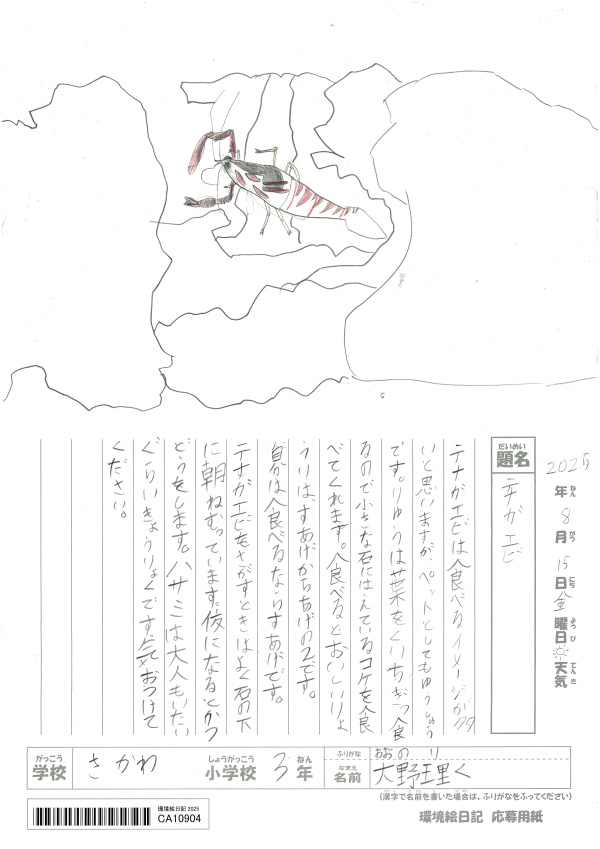 2025年ねん8月がつ15日にち金曜日ようび☼天気てんき
題名だいめい
テナガエビ
テナガエビは食べるイメージが多
いと思いますが、ペットとしてもゆうしゅう
です。りゆうは葉をくいちぎって食べ
るので小さな石にはえているコケを食
べてくれます。食べるとおいしいりょ
うりは、すあげからあげの2です。
自分は食べるならすあげです。
テナガエビをさがすときはよく石の下
に朝ねむっています。夜になるとかつ
どうをします。ハサミは大人もいたい
ぐらいきょうりょくです。気おつけて
ください。
がっこう学校 さかわ しょうがっこう小学校 3ねん年
ふりがな おおのり
なまえ名前 大野理く
(漢字で名前を書いた場合は、ふりがなをふってください)
環境絵日記 2025
CA10904
環境絵日記 応募用紙